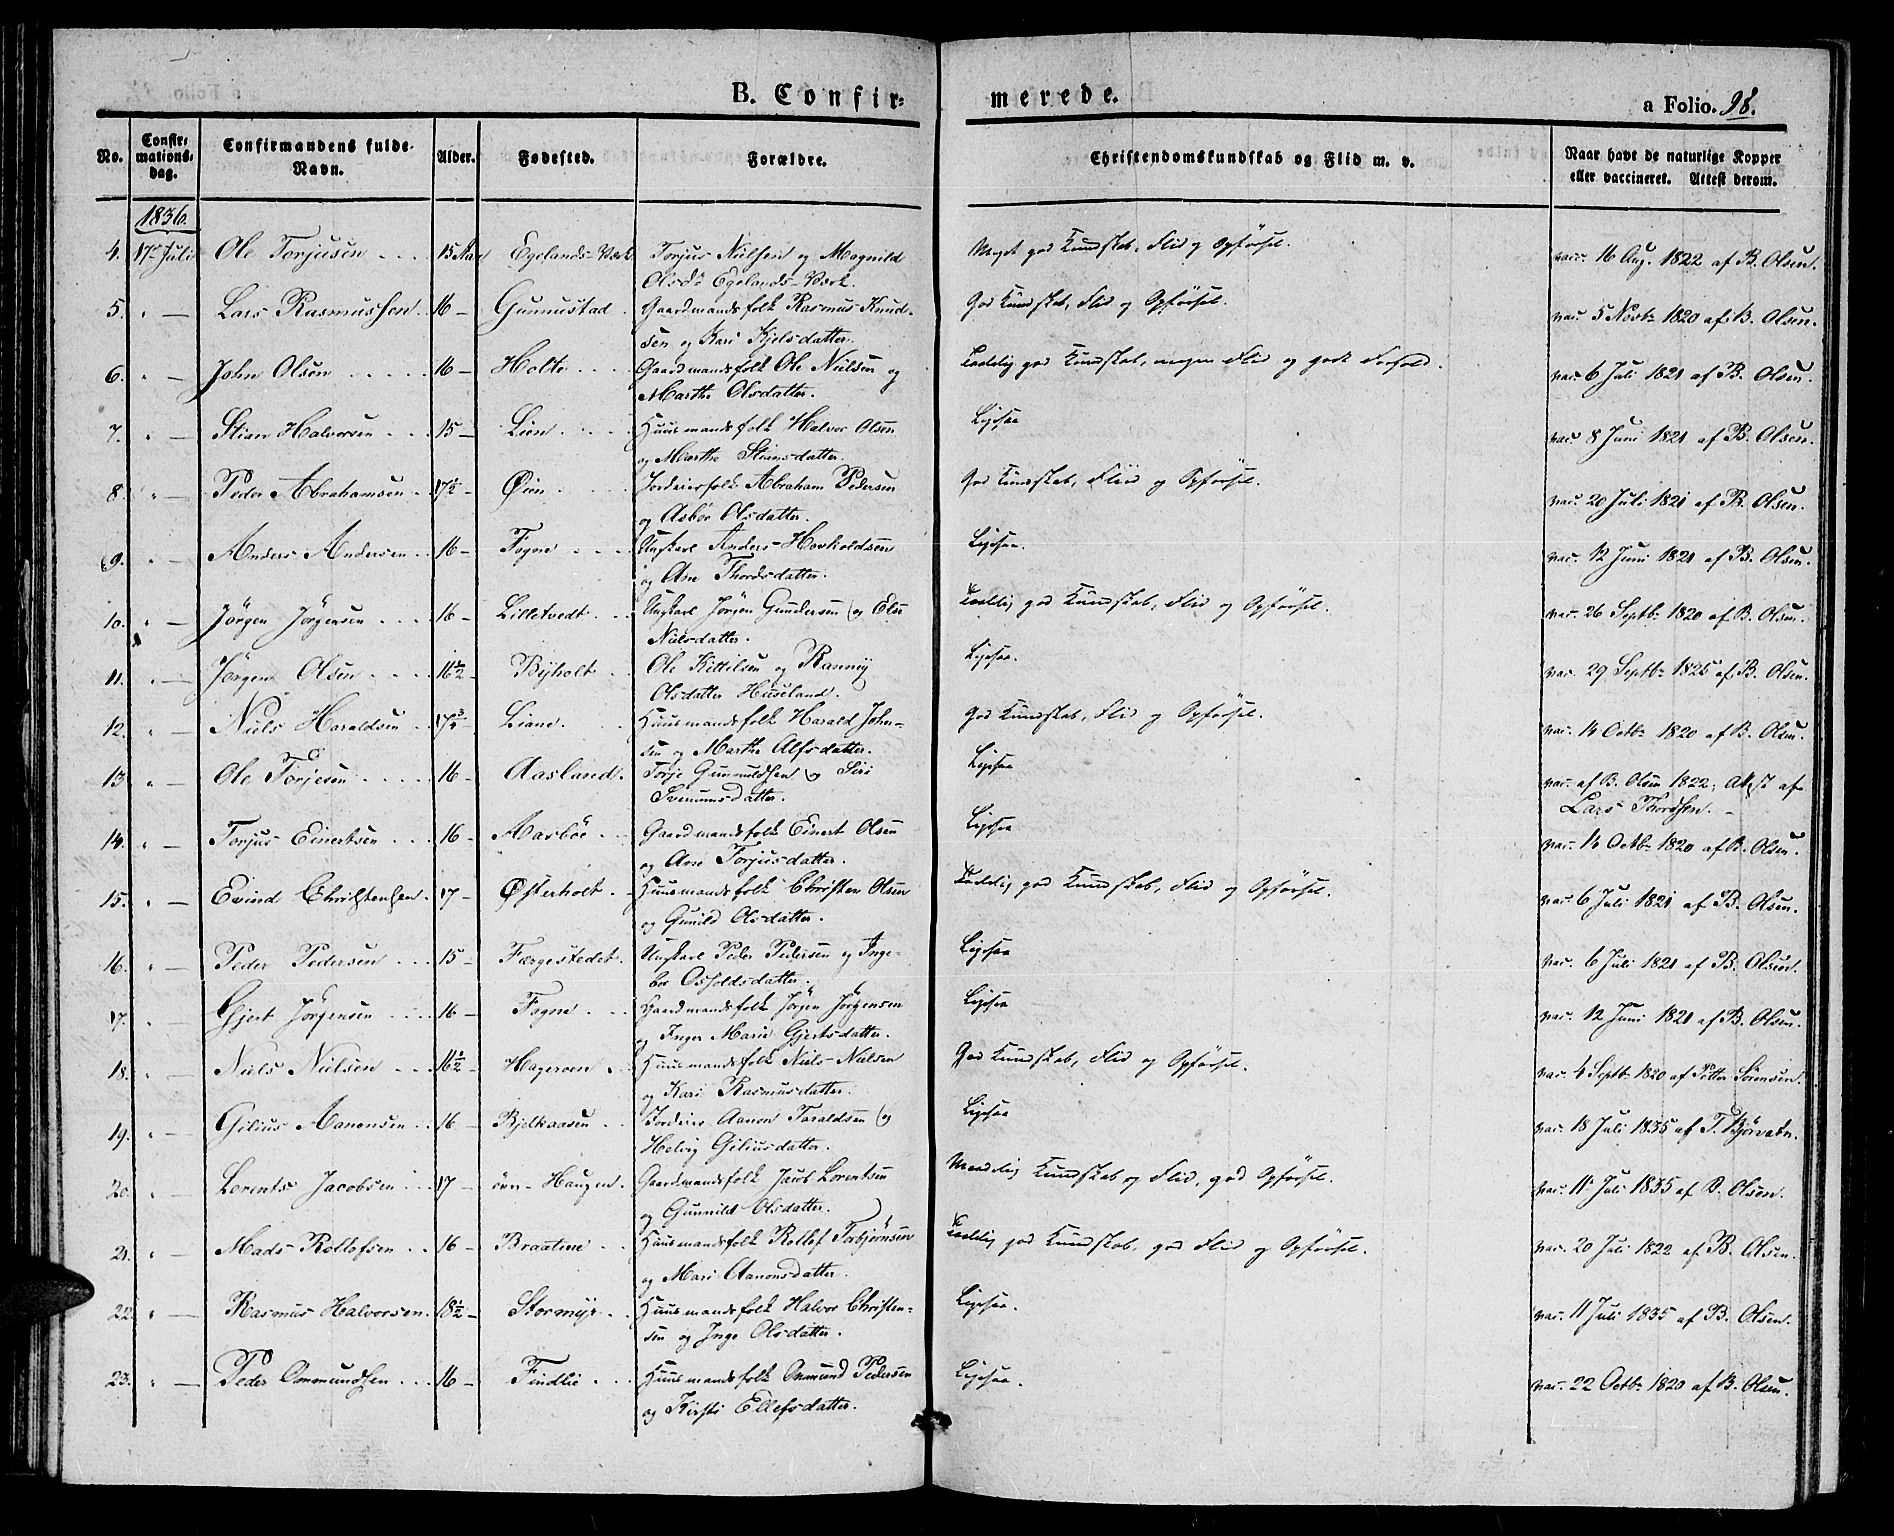 B. Confirmerede.
a Folio. 98.
No. Confirmations-dag. Confirmandens fulde Navn. Alder. Fødested. Forældre. Christendomskundskab og Flid m. v. Naar havt de naturlige Kopper eller vaccineret. Attest derom.
1836.
4. 17de Juli Ole Torjusen 15 Aar Egelands-Værk Torjus Nielsen og Magnild Meget god Kundskab, Flid og Opførsel. vac. 16 Aug. 1822 af B. Olsen.
Olsdr Egelands-Værk.
5. " — Lars Rasmussen 16 — Gunnustad Gaardmandsfolk Rasmus Knud- God Kundskab, Flid og Opførsel. vac. 5 Novbr 1820 af B. Olsen.
sen og Kari Kjelsdatter.
6. " — John Olsen 16 — Holte Gaardmandsfolk Ole Nielsen og Temmelig god Kundskab, megen Flid og godt Forhold. vac. 6 Juli 1821 af B. Olsen.
Marthe Olsdatter.
7. " — Stian Halvorsen 15 — Lien Huusmandsfolk Halvor Olsen Ligesaa vac. 8 Juni 1821 af B. Olsen.
og Marthe Stiansdatter.
8. " — Peder Abrahamsen 17½ — Øien Jordeierfolk Abraham Pedersen God Kundskab, Fliid og Opførsel. vac. 20 Juli 1821 af B. Olsen.
og Asbør Olsdatter.
9. " — Anders Andersen 16 — Fogne Ungkarl Anders Hovholdsen Ligesaa. vac. 12 Juni 1821 af B. Olsen.
og Ane Thordsdatter.
10. " — Jörgen Jörgensen 16 — Lilletvedt Ungkarl Jörgen Gundersen og Else god Kundskab, Flid og Opførsel. vac. 26 Septbr 1820 af B. Olsen.
Nielsdatter.
11. " — Jörgen Olsen 16½ — Byholt Ole Kittilsen og Ranneg Ligesaa. vac. 29 Septbr 1825 af B. Olsen.
Olsdatter Huseland.
12. " — Niels Haraldsen Liane Huusmandsfolk Harald John- God Kundskab, Flid og Opførsel. vac. 14 Octbr 1820 af B. Olsen.
sen og Marthe Alfsdatter.
13 " — Ole Torjesen 16 — Aasland Torje Gunnuldsen og Siri Ligesaa vac. af B. Olsen 1822; Attest af
Svenumsdatter. Lars Thordsen.
14. " — Torjus Einertsen 16 — Aasboe Gaardmandsfolk Einert Olsen Ligesaa vac. 14 Octbr 1820 af B. Olsen.
og Ane Torjusdatter.
15. " — Evind Christensen 17 — Østerholt Huusmandsfolk Christen Olsen god Kundskab, Flid og Opførsel. vac. 6 Juli 1821 af B. Olsen.
og Gunild Olsdatter.
16. " — Peder Pedersen 15 — Færgestedet Ungkarl Peder Pedersen og Inge- Ligesaa vac. 6 Juli 1821 af B. Olsen.
bor Osholdsdatter.
17. " — Gjert Jörgensen 16 — Fogne Gaardmandsfolk Jörgen Jörgensen Ligesaa vac. 12 Juni 1821 af B. Olsen.
og Inger Marie Gjertsdatter.
18. " — Niels Nielsen 16½ — Hageroen Huusmandsfolk Niels Nielsen God Kundskab, Flid og Opførsel. vac. 4 Septbr 1820 af Petter Sørensen.
og Kari Rasmusdatter.
19. " — Gilius Aanonsen 16 — Bjelkaasen Jordeier Aanon Taraldsen og Ligesaa vac. 18 Juli 1835 af T. Bjørvatn.
Helvig Giliusdatter.
20. " — Lorents Jacobsen 17 — Haugen Gaardmandsfolk Jacob Lorentsen Maadelig Kundskab og Flid, god Opførsel. vac. 11 Juli 1835 af B. Olsen.
og Gunnild Olsdatter.
21. " — Mads Rollefsen 16 — Braatene Huusmandsfolk Rollef Torbjörnsen god Kundskab, god Flid og Opførsel. vac. 20 Juli 1822 af B. Olsen.
og Mari Aanonsdatter.
22. " — Rasmus Halvorsen 18½ — Stormyr Huusmandsfolk Halvor Christen- Ligesaa. vac. 11 Juli 1835 af B. Olsen.
sen og Inge Olsdatter.
23. " — Peder Ommundsen 16 — Findlie Huusmandsfolk Ommund Pedersen Ligesaa. vac. 22 Octbr 1820 af B. Olsen.
og Kirsti Ellefsdatter.